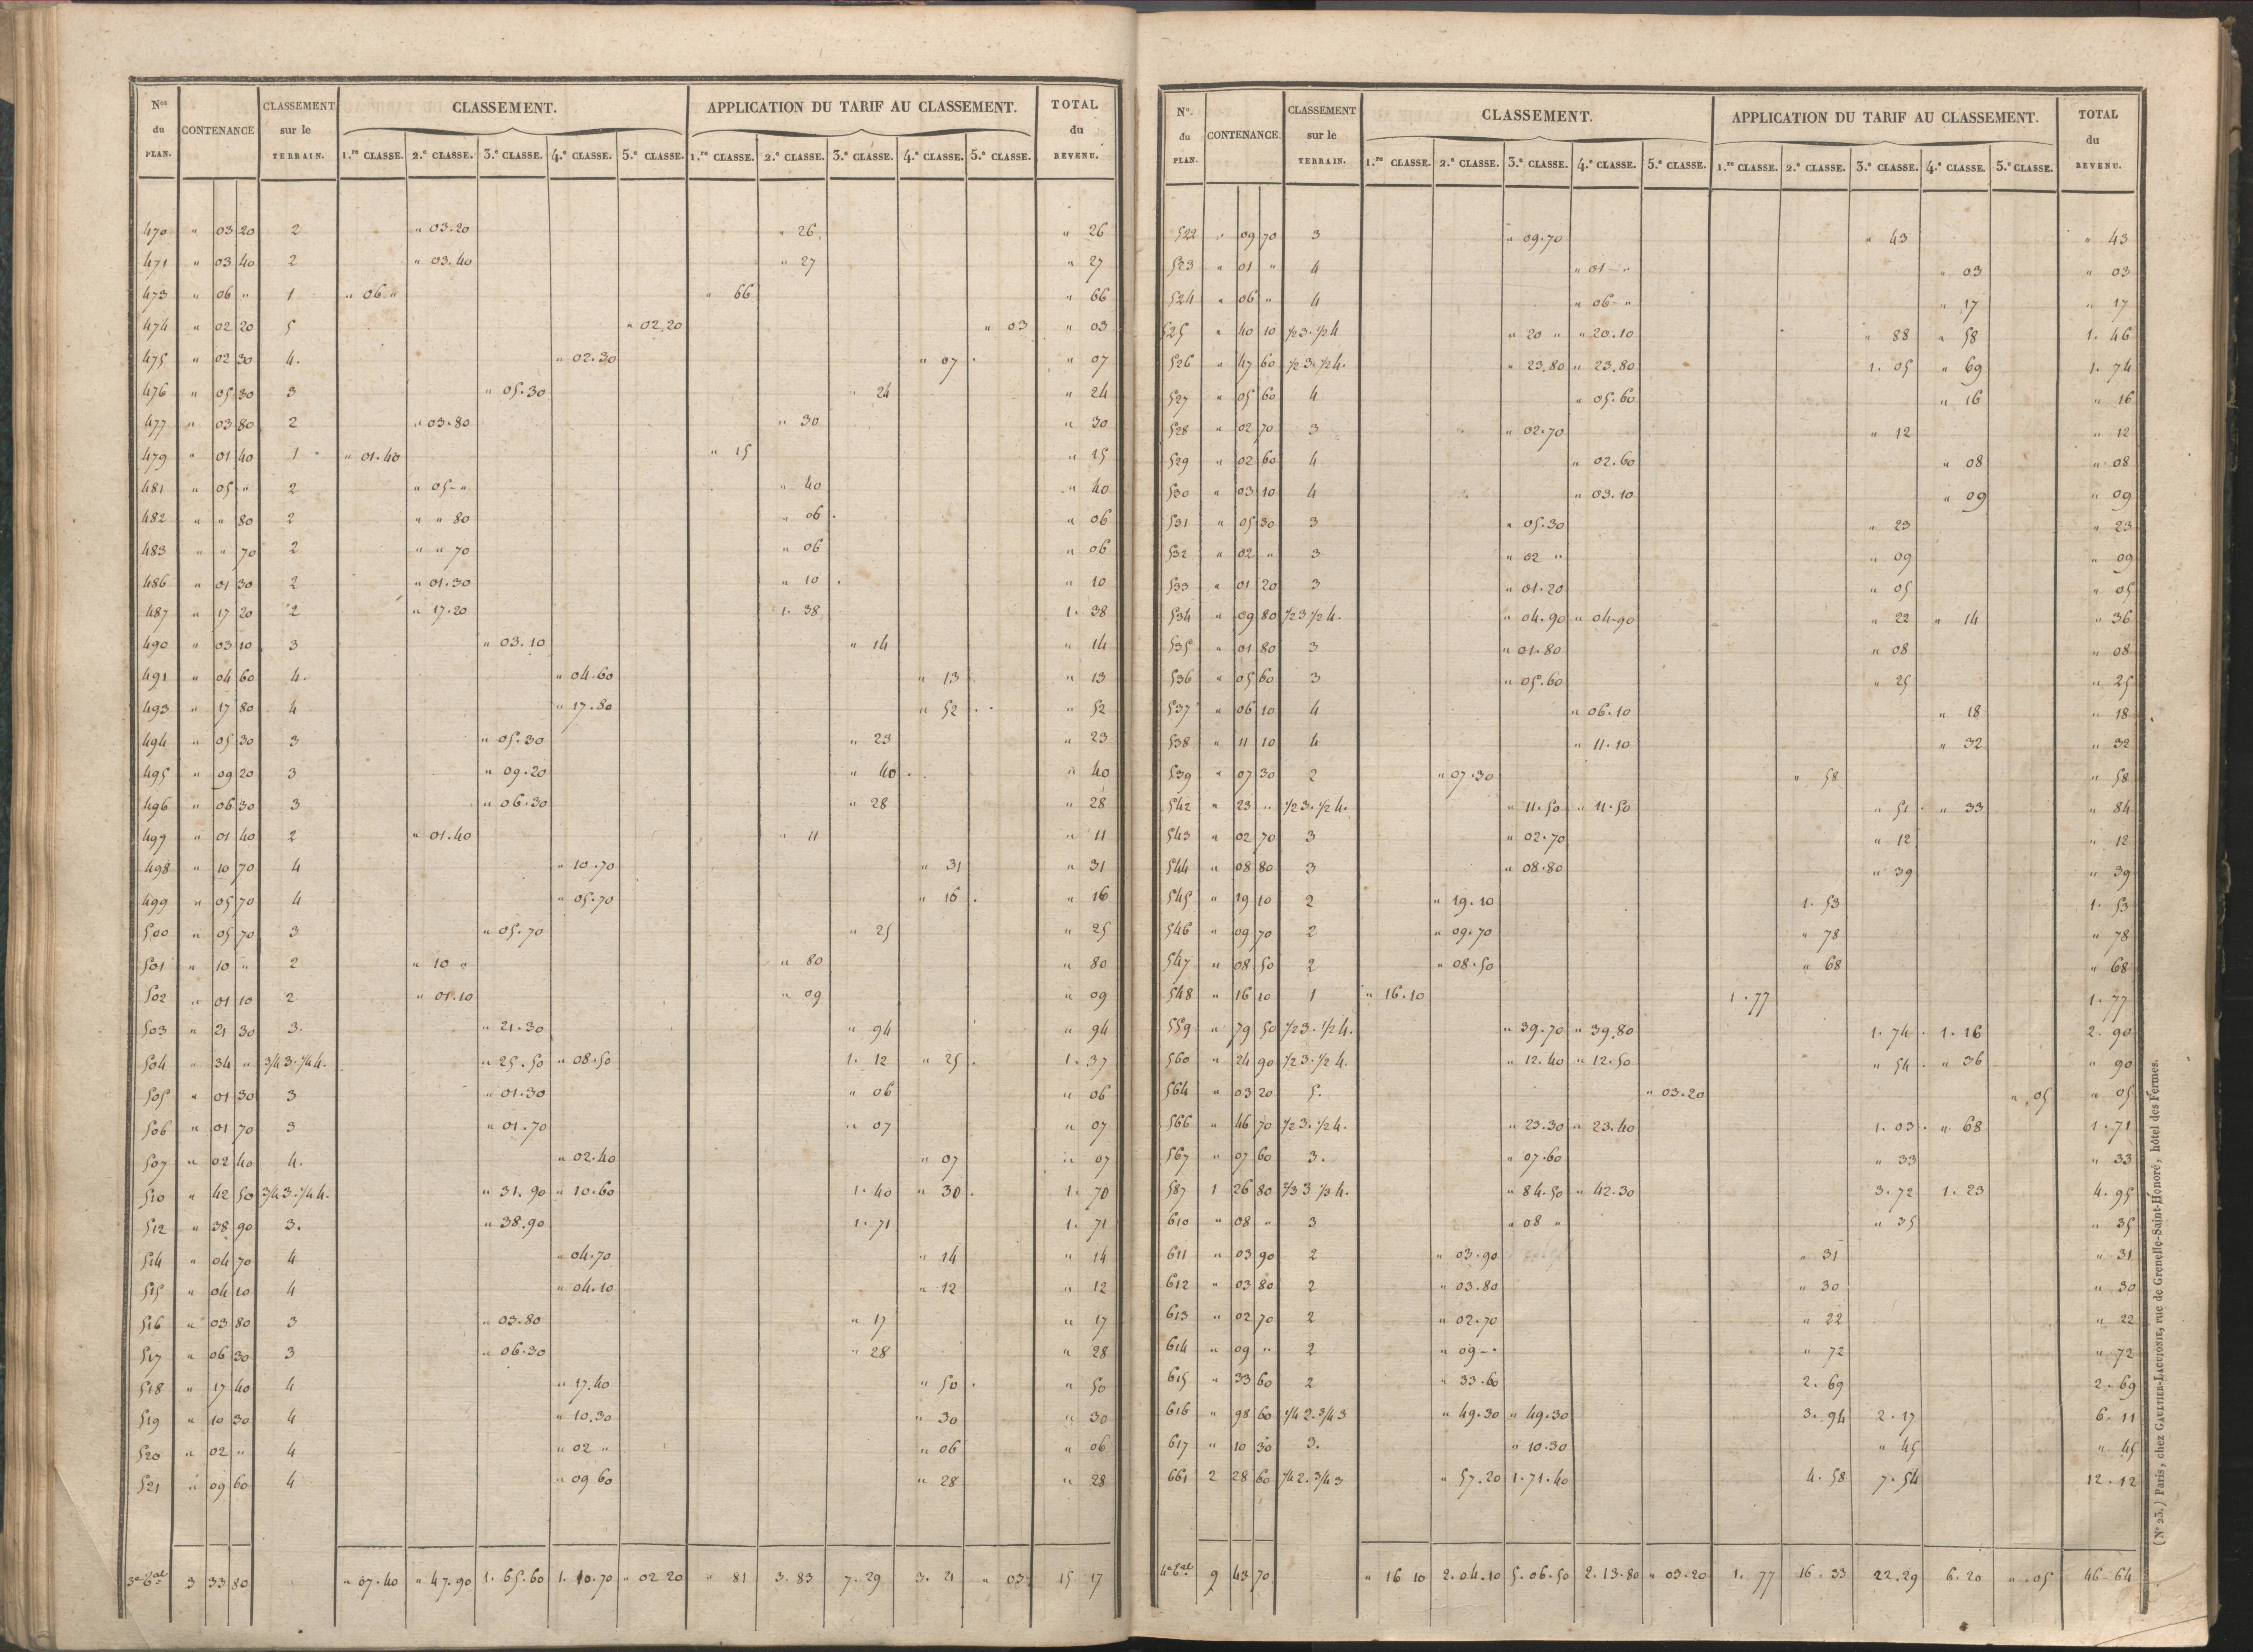 Nos du PLAN. CONTENANCE CLASSEMENT sur le TERRAIN. CLASSEMENT. APPLICATION DU TARIF AU CLASSEMENT. TOTAL du REVENU.
1.re CLASSE. 2.e CLASSE. 3.e CLASSE. 4.e CLASSE. 5.e CLASSE. 1.re CLASSE. 2.e CLASSE. 3.e CLASSE. 4.e CLASSE. 5.e CLASSE.
470 " 03 20 2 " 03.20 " 26 " 26
471 " 03 40 2 " 03.40 " 27 " 27
473 " 06 " 1 " 06 " " 66 " 66
474 " 02 20 5 " 02.20 " 03 " 03
475 " 02 30 4. " 02.30 " 07 " 07
476 " 05 30 3 " 05.30 " 24 " 24
477 " 03 80 2 " 03.80 " 30 " 30
479 " 01 40 1 " 01.40 " 15 " 15
481 " 05 " 2 " 05-" " 40 " 40
482 " " 80 2 " " 80 " 06 " 06
483 " " 70 2 " " 70 " 06 " 06
486 " 01 30 2 " 01.30 " 10 " 10
487 " 17 20 2 " 17.20 1. 38 1. 38
490 " 03 10 3 " 03.10 " 14 " 14
491 " 04 60 4. " 04.60 " 13 " 13
493 " 17 80 4 " 17.80 " 52 " 52
494 " 05 30 3 " 05.30 " 23 " 23
495 " 09 20 3 " 09.20 " 40 " 40
496 " 06 30 3 " 06.30 " 28 " 28
497 " 01 40 2 " 01.40 " 11 " 11
498 " 10 70 4 " 10.70 " 31 " 31
499 " 05 70 4 " 05.70 " 16 " 16
500 " 05 70 3 " 05.70 " 25 " 25
501 " 10 " 2 " 10 " " 80 " 80
502 " 01 10 2 " 01.10 " 09 " 09
503 " 21 30 3. " 21.30 " 94 " 94
504 " 34 " 3/4 3. 1/4 4. " 25.50 " 08.50 1. 12 " 25 1. 37
505 " 01 30 3 " 01.30 " 06 " 06
506 " 01 70 3 " 01.70 " 07 " 07
507 " 02 40 4. " 02.40 " 07 " 07
510 " 42 50 3/4 3. 1/4 4. " 31.90 " 10.60 1. 40 " 30 1. 70
512 " 38 90 3. " 38.90 1. 71 1. 71
514 " 04 70 4 " 04.70 " 14 " 14
515 " 04 10 4 " 04.10 " 12 " 12
516 " 03 80 3 " 03.80 " 17 " 17
517 " 06 30 3 " 06.30 " 28 " 28
518 " 17 40 4 " 17.40 " 50 " 50
519 " 10 30 4 " 10.30 " 30 " 30
520 " 02 " 4 " 02 " " 06 " 06
521 " 09 60 4 " 09 60 " 28 " 28
3 33 80 " 07.40 " 47.90 1. 65.60 1. 10.70 " 02 20 " 81 3. 83 7. 29 3. 21 " 03 15. 17
No. du PLAN. CONTENANCE. CLASSEMENT sur le TERRAIN. CLASSEMENT. APPLICATION DU TARIF AU CLASSEMENT. TOTAL du REVENU.
1.re CLASSE. 2.e CLASSE. 3.e CLASSE. 4.e CLASSE. 5.e CLASSE. 1.re CLASSE. 2.e CLASSE. 3.e CLASSE. 4.e CLASSE. 5.e CLASSE.
522 " 09 70 3 " 09.70 " 43 " 43
523 " 01 " 4 " 01-" " 03 " 03
524 " 06 " 4 " 06-" " 17 " 17
525 " 40 10 1/2 3. 1/2 4 " 20 " " 20.10 " 88 " 58 1. 46
526 " 47 60 1/2 3. 1/2 4. " 23.80 " 23.80 1. 05 " 69 1. 74
527 " 05 60 4 " 05.60 " 16 " 16
528 " 02 70 3 " 02.70 " 12 " 12
529 " 02 60 4 " 02.60 " 08 " 08
530 " 03 10 4 " 03.10 " 09 " 09
531 " 05 30 3 " 05.30 " 23 " 23
532 " 02 " 3 " 02 " " 09 " 09
533 " 01 20 3 " 01.20 " 05 " 05
534 " 09 80 1/2 3 1/2 4. " 04.90 " 04-90 " 22 " 14 " 36
535 " 01 80 3 " 01.80 " 08 " 08
536 " 05 60 3 " 05.60 " 25 " 25
537 " 06 10 4 " 06.10 " 18 " 18
538 " 11 10 4 " 11.10 " 32 " 32
539 " 07 30 2 " 07.30 " 58 " 58
542 " 23 " 1/2 3. 1/2 4. " 11.50 " 11.50 " 51 " 33 " 84
543 " 02 70 3 " 02.70 " 12 " 12
544 " 08 80 3 " 08.80 " 39 " 39
545 " 19 10 2 " 19.10 1. 53 1. 53
546 " 09 70 2 " 09.70 " 78 " 78
547 " 08 50 2 " 08.50 " 68 " 68
548 " 16 10 1 " 16.10 1. 77 1. 77
559 " 79 50 1/2 3. 1/2 4. " 39.70 " 39.80 1. 74 1. 16 2. 90
560 " 24 90 1/2 3. 1/2 4. " 12.40 " 12.50 " 54 " 36 " 90
564 " 03 20 5. " 03.20 " 05 " 05
566 " 46 70 1/2 3. 1/2 4. " 23.30 " 23.40 1. 03 " 68 1. 71
567 " 07 60 3. " 07.60 " 33 " 33
587 1 26 80 2/3 3 1/3 4. " 84.50 " 42.30 3. 72 1. 23 4. 95
610 " 08 " 3 " 08 " " 35 " 35
611 " 03 90 2 " 03.90 " 31 " 31
612 " 03 80 2 " 03.80 " 30 " 30
613 " 02 70 2 " 02.70 " 22 " 22
614 " 09 " 2 " 09-" " 72 " 72
615 " 33 60 2 " 33.60 2. 69 2. 69
616 " 98 60 2. 3/4 3 " 49.30 " 49.30 3. 94 2. 17 6. 11
617 " 10 30 3. " 10.30 " 45 " 45
661 2 28 60 1/4 2. 3/4 3 " 57.20 1.71.40 4. 58 7. 54 12. 12
9 43 70 " 16 10 2.04.10 5.06.50 2.13.80 " 03.20 1. 77 16. 33 22.29 6. 20 " 05 46-64
(No 23.) Paris, chez GAULTIER-LAGUIONIE, rue de Grenelle-Saint-Honoré, hôtel des Fermes.